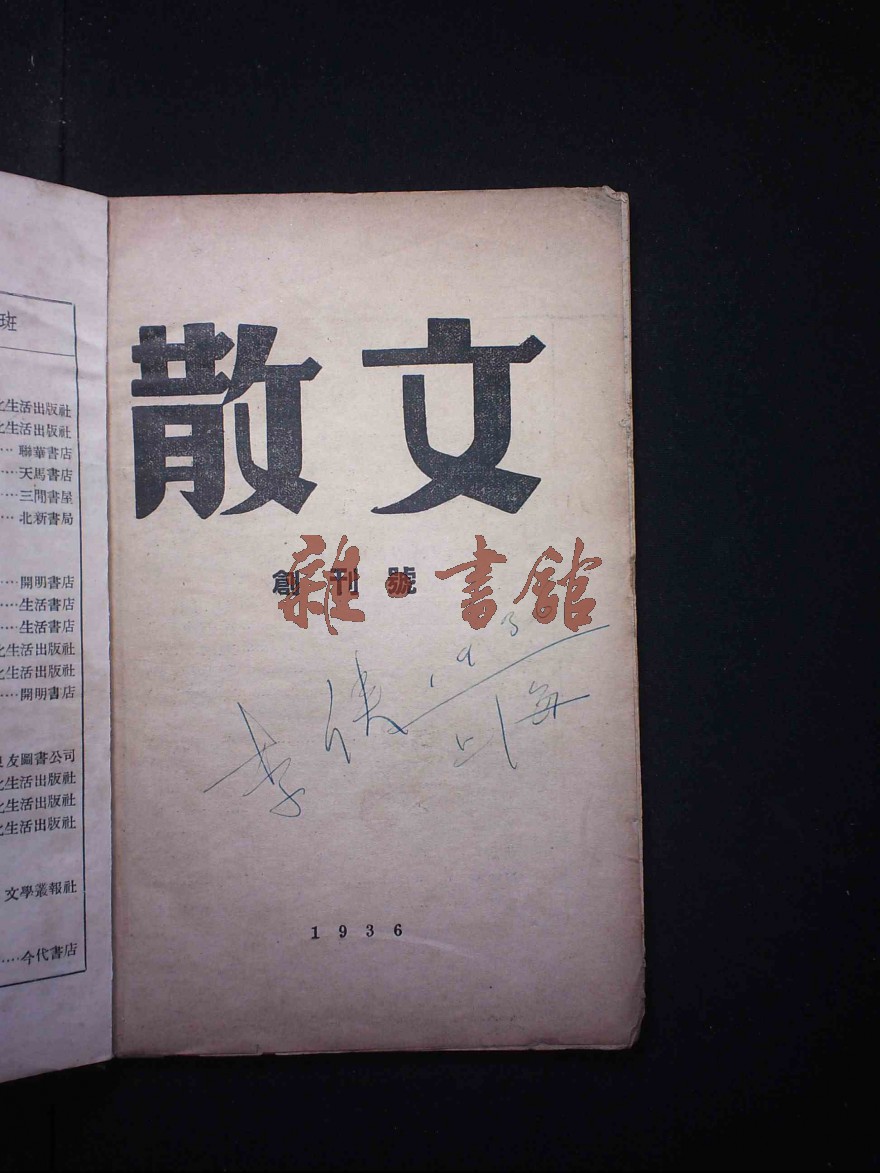 班
生活出版社
生活出版社
…聯華書店
…天馬書店
…三閒書屋
…北新書局
…開明書店
…生活書店
…生活書店
生活出版社
生活出版社
…開明書店
友圖書公司
生活出版社
生活出版社
生活出版社
文學叢報社
…今代書店
散文
創刊號
雜·書館
李
上海
1936